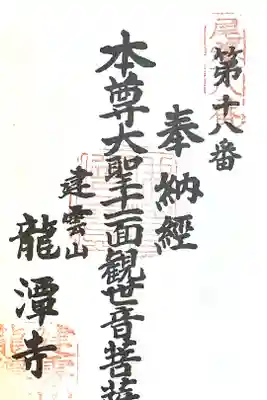 第十八番
奉納経
本尊大聖十一面観世音菩薩
建雲山
龍潭寺